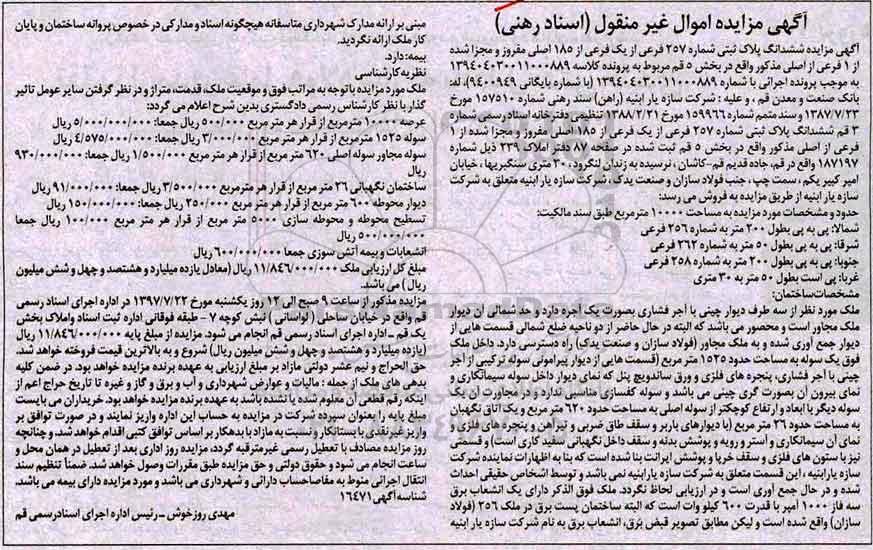 آگهی مزایده اموال غیر منقول (اسناد رهنی)
آگهی مزایده ششدانگ پلاک ثبتی شماره ۲۵۷ فرعی از یک فرعی از ۱۸۵ اصلی مفروز و مجزا شده
از ۱ فرعی از اصلی مذکور واقع در بخش ۵ قم مربوط به پرونده کلاسه ۱۳۹۴۰۴۰۳۰۰۱۱۰۰۰۸۸۹
به موجب پرونده اجرائی با شماره ۱۳۹۴۰۴۰۳۰۰۱۱۰۰۰۸۸۹ (با شماره بایگانی ۹۴۰۰۹۴۹)، له:
بانک صنعت و معدن قم ، و علیه : شرکت سازه یار ابنیه (راهن) سند رهنی شماره ۱۵۷۵۱۰ مورخ
۱۳۸۷/۷/۲۳ و سند متمم شماره ۱۵۹۹۶۶ مورخ ۱۳۸۸/۲/۲۱ تنظیمی دفترخانه اسناد رسمی شماره
۳ قم ششدانگ پلاک ثبتی شماره ۲۵۷ فرعی از یک فرعی از ۱۸۵ اصلی مفروز و مجزا شده از ۱
فرعی از اصلی مذکور واقع در بخش ۵ قم ثبت شده در صفحه ۸۷ دفتر املاک ۲۳۹ ذیل شماره
۱۸۷۱۹۷ واقع در قم، جاده قدیم قم-کاشان ، نرسیده به زندان لنگرود ، ۳۰ متری سنگبریها ، خیابان
امیر کبیر یکم ، سمت چپ ، جنب فولاد سازان و صنعت یدک، شرکت سازه یار ابنیه متعلق به شرکت
سازه یار ابنیه از طریق مزایده به فروش می رسد:
حدود و مشخصات مورد مزایده به مساحت ۱۰۰۰۰ متر مربع طبق سند مالکیت:
شمالا: پی به پی بطول ۲۰۰ متر به شماره ۲۵۶ فرعی
شرقا: پی به پی بطول ۵۰ متر به شماره ۲۶۲ فرعی
جنوبا: پی به پی بطول ۲۰۰ متر به شماره ۲۵۸ فرعی
غربا: پی است بطول ۵۰ متر به ۳۰ متری
مشخصات ساختمان:
ملک مورد نظر از سه طرف دیوار چینی با آجر فشاری بصورت یک آجره دارد و حد شمالی آن دیوار
ملک مجاور است و محصور می باشد که البته در حال حاضر از دو ناحیه ضلع شمالی قسمت هایی از
دیوار جمع آوری شده و به ملک مجاور (فولاد سازان و صنعت یدک) راه دسترسی دارد. داخل ملک
فوق یک سوله به مساحت حدود ۱۵۲۵ متر مربع (قسمت هایی از دیوار پیرامونی سوله ترکیبی از آجر
چینی با آجر فشاری، پنجره های فلزی و ورق ساندویچ پنل که نمای دیوار داخل سوله سیمانکاری و
نمای بیرون آن بصورت گری چینی می باشد و سوله کفسازی مناسبی ندارد و در مجاورت آن یک
سوله دیگر با ابعاد و ارتفاع کوچکتر از سوله اصلی به مساحت حدود ۶۲۰ متر مربع و یک اتاق نگهبان
به مساحت حدود ۲۶ متر مربع (با دیوارهای باربر و سقف طاق ضربی و تیرآهن و پنجره های فلزی و
نمای آن سیمانکاری و آستر و رویه و پوشش بدنه و سقف داخل نگهبانی سفید کاری است) و قسمتی
نیز با ستون های فلزی و سقف خرپا و پوشش ایرانیت بنا شده است که بنا به اظهارات نماینده شرکت
سازه یار ابنیه ، این قسمت متعلق به شرکت سازه یار ابنیه نمی باشد و توسط اشخاص حقیقی احداث
شده و در حال جمع آوری است و در ارزیابی لحاظ نگردد. ملک فوق الذکر دارای یک انشعاب برق
سه فاز ۱۰۰۰ آمپر با قدرت ۶۰۰ کیلو وات است که البته ساختمان پست برق در ملک ۲۵۶ (فولاد
سازان) واقع شده است و لیکن مطابق تصویر قبض برق، انشعاب برق به نام شرکت سازه یار ابنیه
مبنی بر ارائه مدارک شهرداری متاسفانه هیچگونه اسناد و مدارکی در خصوص پروانه ساختمان و پایان
کار ملک ارائه نگردید.
بیمه: دارد.
نظریه کارشناسی
ملک مورد مزایده با توجه به مراتب فوق و موقعیت ملک، قدمت، متراژ و در نظر گرفتن سایر عوامل تاثیر
گذار با نظر کارشناس رسمی دادگستری بدین شرح اعلام می گردد:
عرصه ۱۰۰۰۰ متر مربع از قرار هر متر مربع ۵۰۰/۰۰۰ ریال جمعا: ۵/۰۰۰/۰۰۰/۰۰۰ ریال
سوله ۱۵۲۵ متر مربع از قرار هر متر مربع ۳/۰۰۰/۰۰۰ ریال جمعا: ۴/۵۷۵/۰۰۰/۰۰۰ ریال
سوله مجاور سوله اصلی ۶۲۰ متر مربع از قرار هر متر مربع ۱/۵۰۰/۰۰۰ ریال جمعا: ۹۳۰/۰۰۰/۰۰۰
ریال
ساختمان نگهبانی ۲۶ متر مربع از قرار هر متر مربع ۳/۵۰۰/۰۰۰ ریال جمعا: ۹۱/۰۰۰/۰۰۰ ریال
دیوار محوطه ۶۰۰ متر مربع از قرار هر متر مربع ۲۵۰/۰۰۰ ریال جمعا: ۱۵۰/۰۰۰/۰۰۰ ریال
تسطیح محوطه و محوطه سازی ۵۰۰۰ متر مربع از قرار هر متر مربع ۱۰۰/۰۰۰ ریال جمعا
۵۰۰/۰۰۰/۰۰۰ ریال
انشعابات و بیمه آتش سوزی جمعا ۶۰۰/۰۰۰/۰۰۰ ریال
مبلغ کل ارزیابی ملک ۱۱/۸۴۶/۰۰۰/۰۰۰ ریال (معادل یازده میلیارد و هشتصد و چهل و شش میلیون
ریال ) می باشد.
مزایده مذکور از ساعت ۹ صبح الی ۱۲ روز یکشنبه مورخ ۱۳۹۷/۷/۲۲ در اداره اجرای اسناد رسمی
قم واقع در خیابان ساحلی (لواسانی ) نبش کوچه ۷ - طبقه فوقانی اداره ثبت اسناد و املاک بخش
یک قم - اداره اجرای اسناد رسمی قم انجام می شود. مزایده از مبلغ پایه ۱۱/۸۴۶/۰۰۰/۰۰۰ ریال
(یازده میلیارد و هشتصد و چهل و شش میلیون ریال) شروع و به بالاترین قیمت فروخته خواهد شد.
حق الحراج و نیم عشر دولتی مازاد بر مبلغ ارزیابی به عهده برنده مزایده خواهد بود. در ضمن کلیه
بدهی های ملک از جمله : مالیات و عوارض شهرداری و آب و برق و گاز و غیره تا تاریخ حراج اعم از
اینکه رقم قطعی آن معلوم شده یا نشده باشد به عهده برنده مزایده خواهد بود. خریداران می بایست
مبلغ پایه را بعنوان سپرده شرکت در مزایده به حساب این اداره واریز نمایند و در صورت توافق بر
واریز غیر نقدی با بستانکار و نسبت به مازاد با بدهکار بر اساس توافق کتبی اقدام خواهد شد. و چنانچه
روز مزایده مصادف با تعطیل رسمی غیر مترقبه گردد، مزایده روز اداری بعد از تعطیل در همان محل و
ساعت انجام می شود و حقوق دولتی و حق مزایده طبق مقررات وصول خواهد شد. ضمناً تنظیم سند
انتقال اجرائی منوط به مفاصاحساب دارائی و شهرداری می باشد و مورد مزایده دارای بیمه می باشد.
شناسه آگهی ۱۶۴۷۱
مهدی روزخوش - رئیس اداره اجرای اسناد رسمی قم